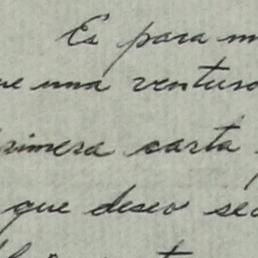 Es para m
ue una ventuso
rimera carta
que deseo sea